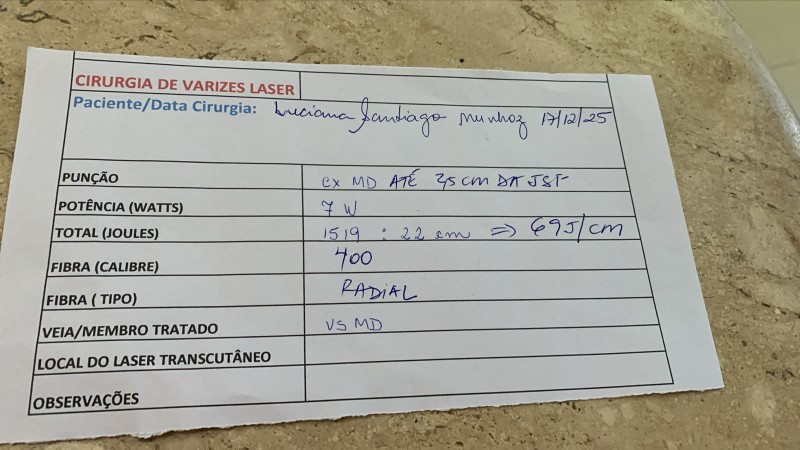 CIRURGIA DE VARIZES LASER
Paciente/Data Cirurgia: Luciana Santiago Munhoz 17/12/25
PUNÇÃO MD ATÉ cm DA JSF
POTÊNCIA (WATTS) 7 W
TOTAL (JOULES) 1519 : 22 cm => 69J/cm
FIBRA (CALIBRE) 400
FIBRA ( TIPO) RADIAL
VEIA/MEMBRO TRATADO VS MD
LOCAL DO LASER TRANSCUTÂNEO
OBSERVAÇÕES